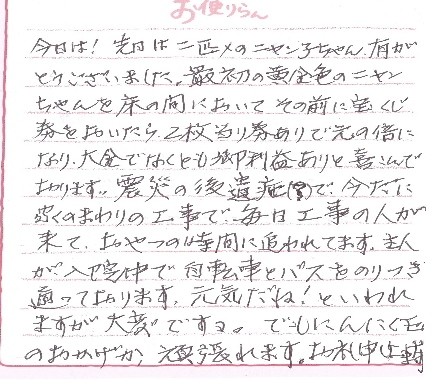 お便りらん
今日は！先日は二匹メのニャン子ちゃん有が
とうございました。最初の黄金色のニャン
ちゃんを床の間においてその前に宝くじ
券をおいたら、2枚当り券ありで元の倍に
なり、大金でなくとも御利益ありと喜んで
おります。震災の後遺症(?)で、今だに
家のまわりの工事で、毎日工事の人が
来て、おやつの時間に追われてます。主人
が入院中で自転車とバスをのりつぎ
通っております。元気だね！といわれ
ますが大変ですヨ。でもにんにく玉
のおかげか頑張れます。お礼申し